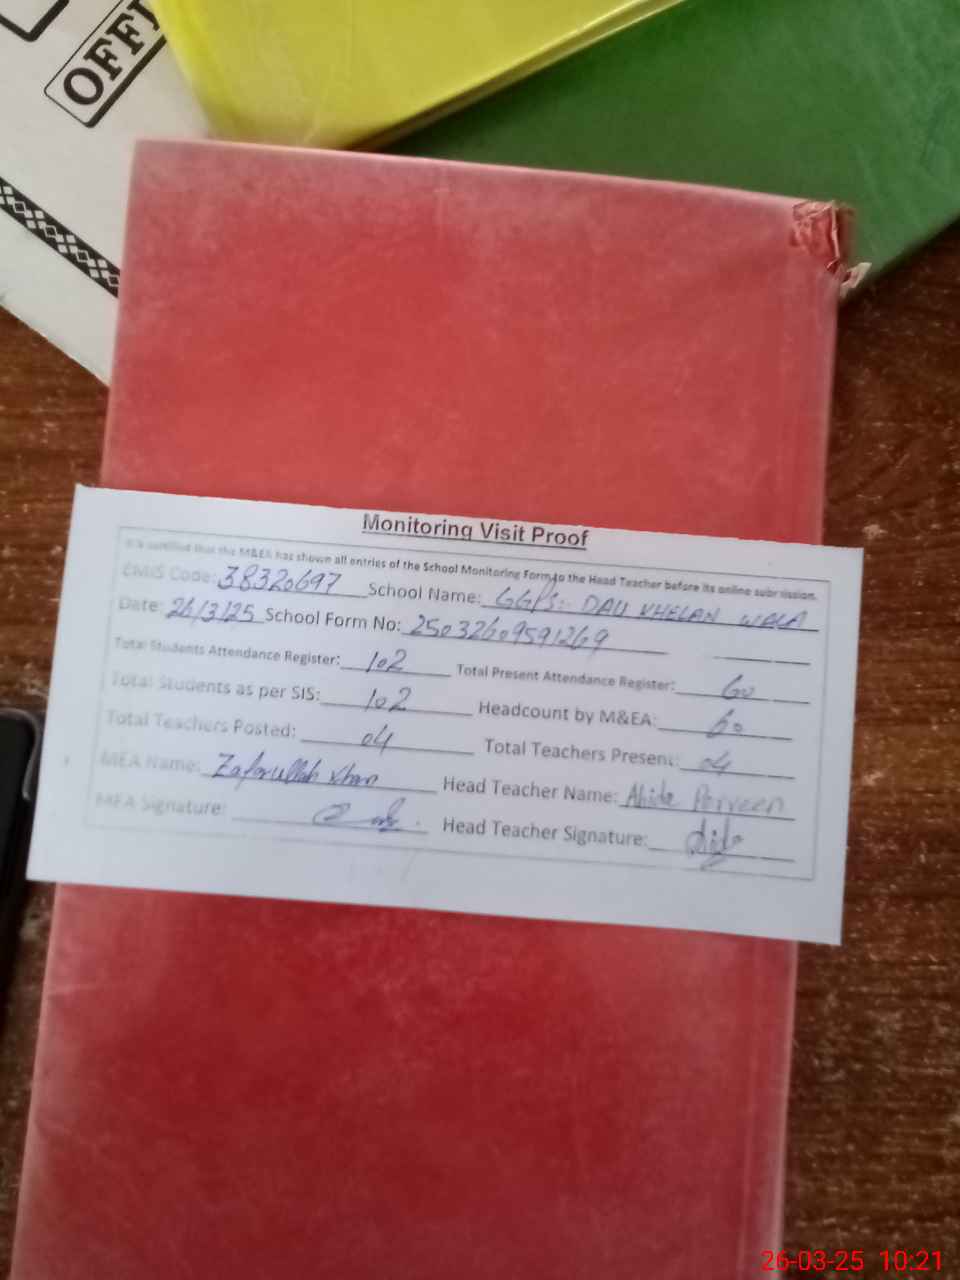 OFFI
Monitoring Visit Proof
It is certified that the M&EA has shown all entries of the School Monitoring Form to the Head Teacher before its online submission.
EMIS Code: 38320697 School Name: GGPS: DALI KHELAN WALA
Date: 26/3/25 School Form No: 25032609591269
Total Students Attendance Register: 102 Total Present Attendance Register: 60
Total Students as per SIS: 102 Headcount by M&EA: 60
Total Teachers Posted: 04 Total Teachers Present: 04
MEA Name: Zafarullah Khan Head Teacher Name: Abida Parveen
MEA Signature: Head Teacher Signature:
26-03-25 10:21